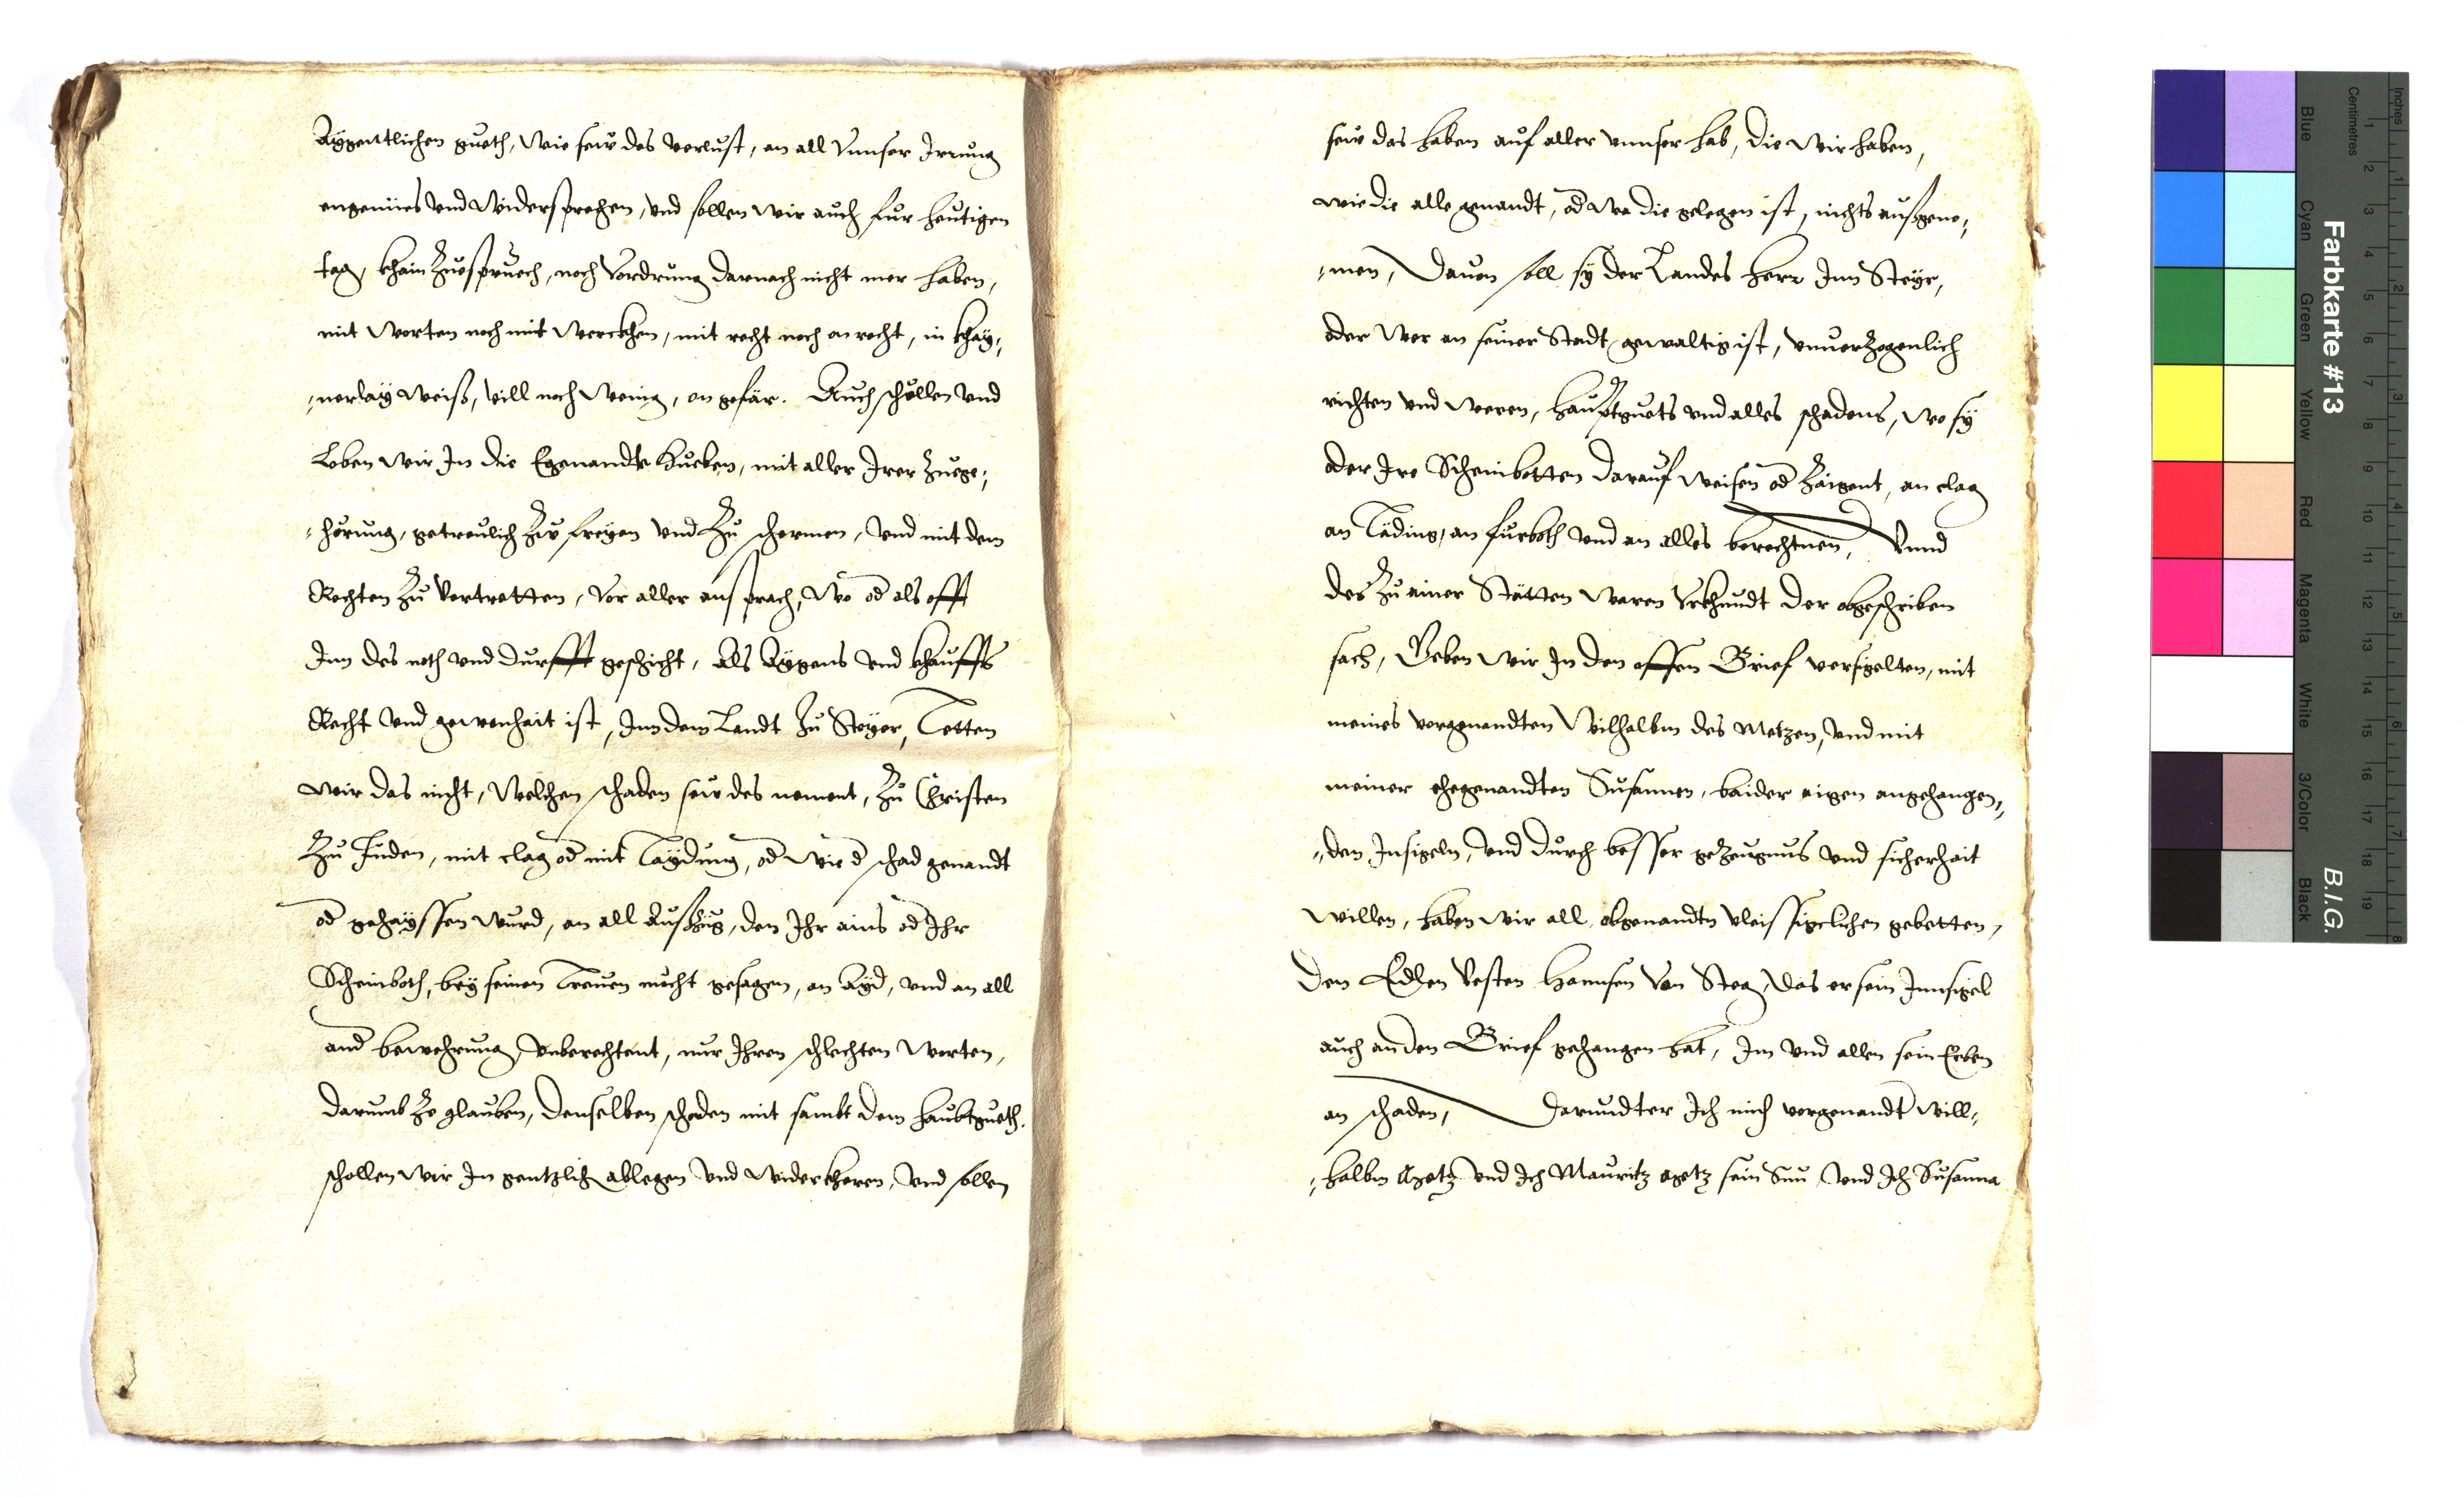 Aygentlichen gueth, Wie seiv des verlust, an all Unnser Irrung
engenües Und Widersprechen, Und sollen wir auch fur heutigen
tag, khain Zuespruech, noch Vordrung darnach nicht mer haben,
mit Worten noch mit Werckhen, mit recht noch on recht, in khay¸
nerlay Weiß, vill noch Wenig, on gefär. Auch schollen Und
Loben Wir In die Egenandte Hueben, mit aller Irer Zuege¸
hörung, getreulich Ziv freyen Und Zu schermen, Und mit dem
Rechten Zu Vertretten, Vor aller ansprach, Wo od als offt
Inn des noth Und durfft geschicht, Als Aygens Und khauffs
Recht Und gewonhait ist, Inn dem Landt Zu Steyer, Tetten
Wir das nicht, Welchen schaden seiv des nement, Zu Christen
Zu Juden, mit clag od mit Taydung, od Wie d schad genandt
od gehayssen Wurd, an all Außzug, den Ihr ains od Ihr
Scheinboth, bey seinen Treuen mocht gesagen, an Ayd, Und an all
and bewehrung Unberechtent, nur Ihren schlechten Worten,
darumb Ze glauben, denselben schaden mit sambt dem haubtgueth.
schollen Wir In gentzlich ablegen Und Widerkheren, Und sollen
seiv das haben auf aller Unnser hab, die Wir haben,
Wie die alle genandt, od Wo die gelegen ist, nichts außgeno¸
men, Dauon soll sy der Landes Herr Inn Steyr,
oder Wer an seiner Stadt gewaltig ist, Unuerzogenlich
richten Und Weren, hauptguets Und alles schadens, Wo sy
oder Ire Scheinbotten darauf Weisen od Zaigent, an clag
an Täding, an furboth Und an alles berechtnen, Unnd
des Zu ainer Stätten Waren Urkhundt der obgeschriben
sach, Geben Wir In den offen Brief versigelten, mit
meines vorgenandten Wilhalbm des Metzen, Und mit
meiner ehegenandten Susannen, baider aigen angehangen¸
den Insigeln, Und durch besser geZeugnus Und sicherhait
Willen, haben Wir all obgenandtn Vleissigelichen gebetten,
den Edlen Vesten Hannsen Van Steg, das er sein Innsigel
auch an den Brief gehangen hat, Im Und allen sein Erben
an schaden, darundter Ich mich vorgenandt Will¸
halbm Und Ich Mauritz sein Sun Und Ich Susanna
Blue
Cyan
Green
Yellow
Red
Magenta
White
3/Color
Black
Farbkarte #13
B.I.G.
Centimetres
1
2
3
4
5
6
7
8
9
10
11
12
13
14
15
16
17
18
19
Inches
1
2
3
4
5
6
7
8